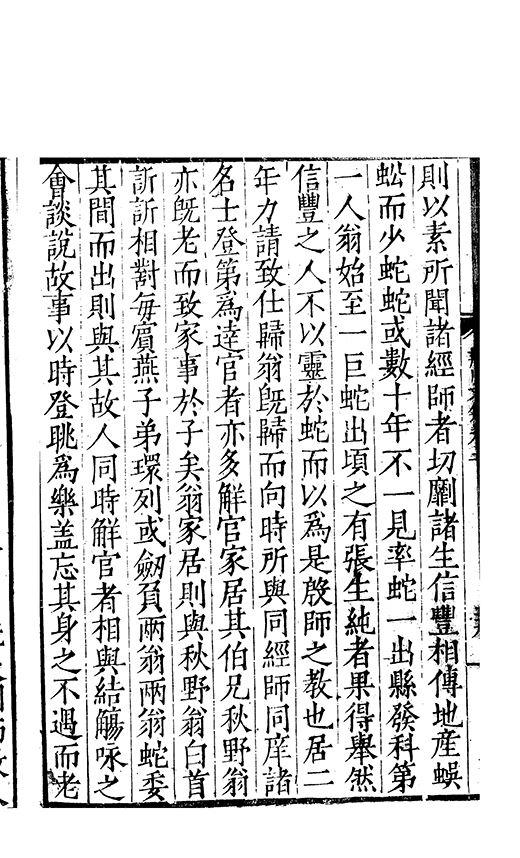 則以素所聞諸經師者切劘諸生信豐相傳地産蜈
蚣而少蛇蛇或數十年不一見率蛇一出縣發科第
一人翁始至一巨蛇出頃之有張生純者果得舉然
信豐之人不以靈於蛇而以爲是殷師之教也居二
年力請致仕歸翁旣歸而向時所與同經師同庠諸
名士登第爲達官者亦多解官家居其伯兄秋野翁
亦旣老而致家事於子矣翁家居則與秋野翁白首
訢訢相對每賓燕子弟環列或劒負兩翁兩翁蛇委
其間而出則與其故人同時解官者相與結觴咏之
會談說故事以時登眺爲樂盖忘其身之不遇而老